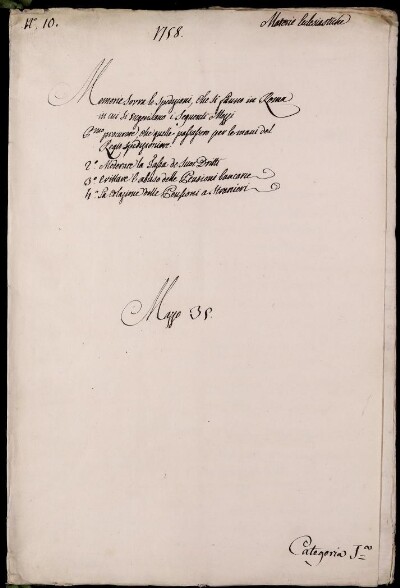 N.° 10.
1758.
Materie Ecclesiastiche
Memorie Sovra le Spedizioni, che si fanno in Roma
in cui si suggeriscono i Seguenti Mezzi
P.mo procurare, che quelle passassero per le mani del
Regio Spedizioniere
2.° Moderare la Tassa de Suoi Dritti
3.° Evittare l'abuso delle Pensioni bancarie
4.° La Relazione delle Pensioni a Stranieri
Mazzo 35.
Categoria I.ma